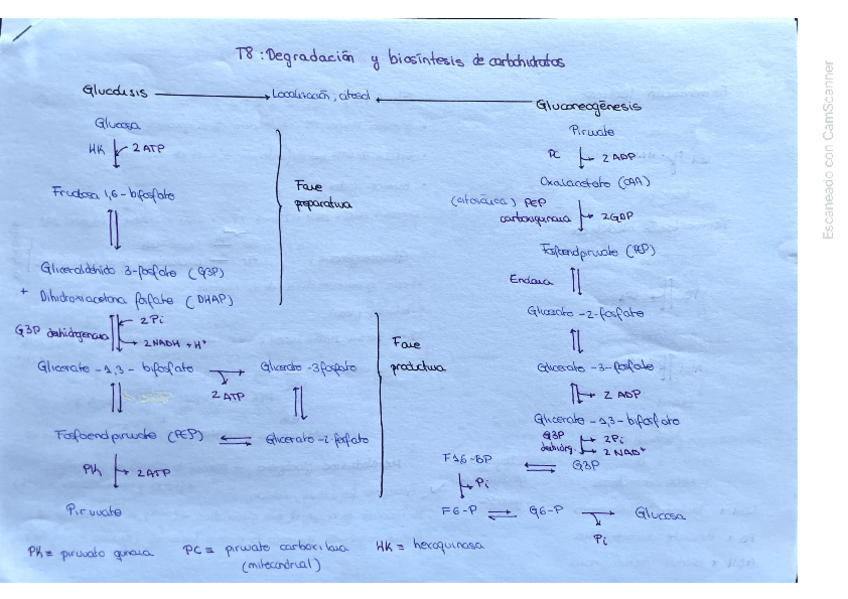 T8: Degradación y biosíntesis de carbohidratos
Glucólisis
Localización, citosol
Gluconeogénesis
Glucosa
HK
2 ATP
Fructosa 1,6-bifosfato
Gliceraldehído 3-fosfato (G3P)
+ Dihidroxiacetona fosfato (DHAP)
Fase
preparativa
G3P deshidrogenasa
2 Pi
2 NADH + H⁺
Glicerato -1,3- bifosfato
2 ATP
Glicerato -3 fosfato
Fosfoenolpiruvato (PEP)
Glicerato -2-fosfato
PK
2 ATP
Piruvato
Fase
productiva
Piruvato
PC
2 ADP
Oxalacetato (OAA)
(citosólica) PEP
carboxiquinasa
2 GDP
Fosfoenolpiruvato (PEP)
Enolasa
Glicerato -2-fosfato
Glicerato -3-fosfato
2 ADP
Glicerato -1,3-bifosfato
G3P
deshidrg.
2 Pi
2 NAD⁺
F1,6-BP
G3P
Pi
F6-P
G6-P
Glucosa
Pi
PK = piruvato quinasa
PC = piruvato carboxilasa
(mitocondrial)
HK = hexoquinasa
Escaneado con CamScanner